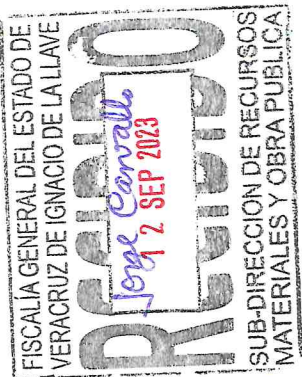 FISCALÍA GENERAL DEL ESTADO DE
VERACRUZ DE IGNACIO DE LA LLAVE
RECIBIDO
Jorge Carvallo
12 SEP 2023
SUB-DIRECCIÓN DE RECURSOS
MATERIALES Y OBRA PUBLICA